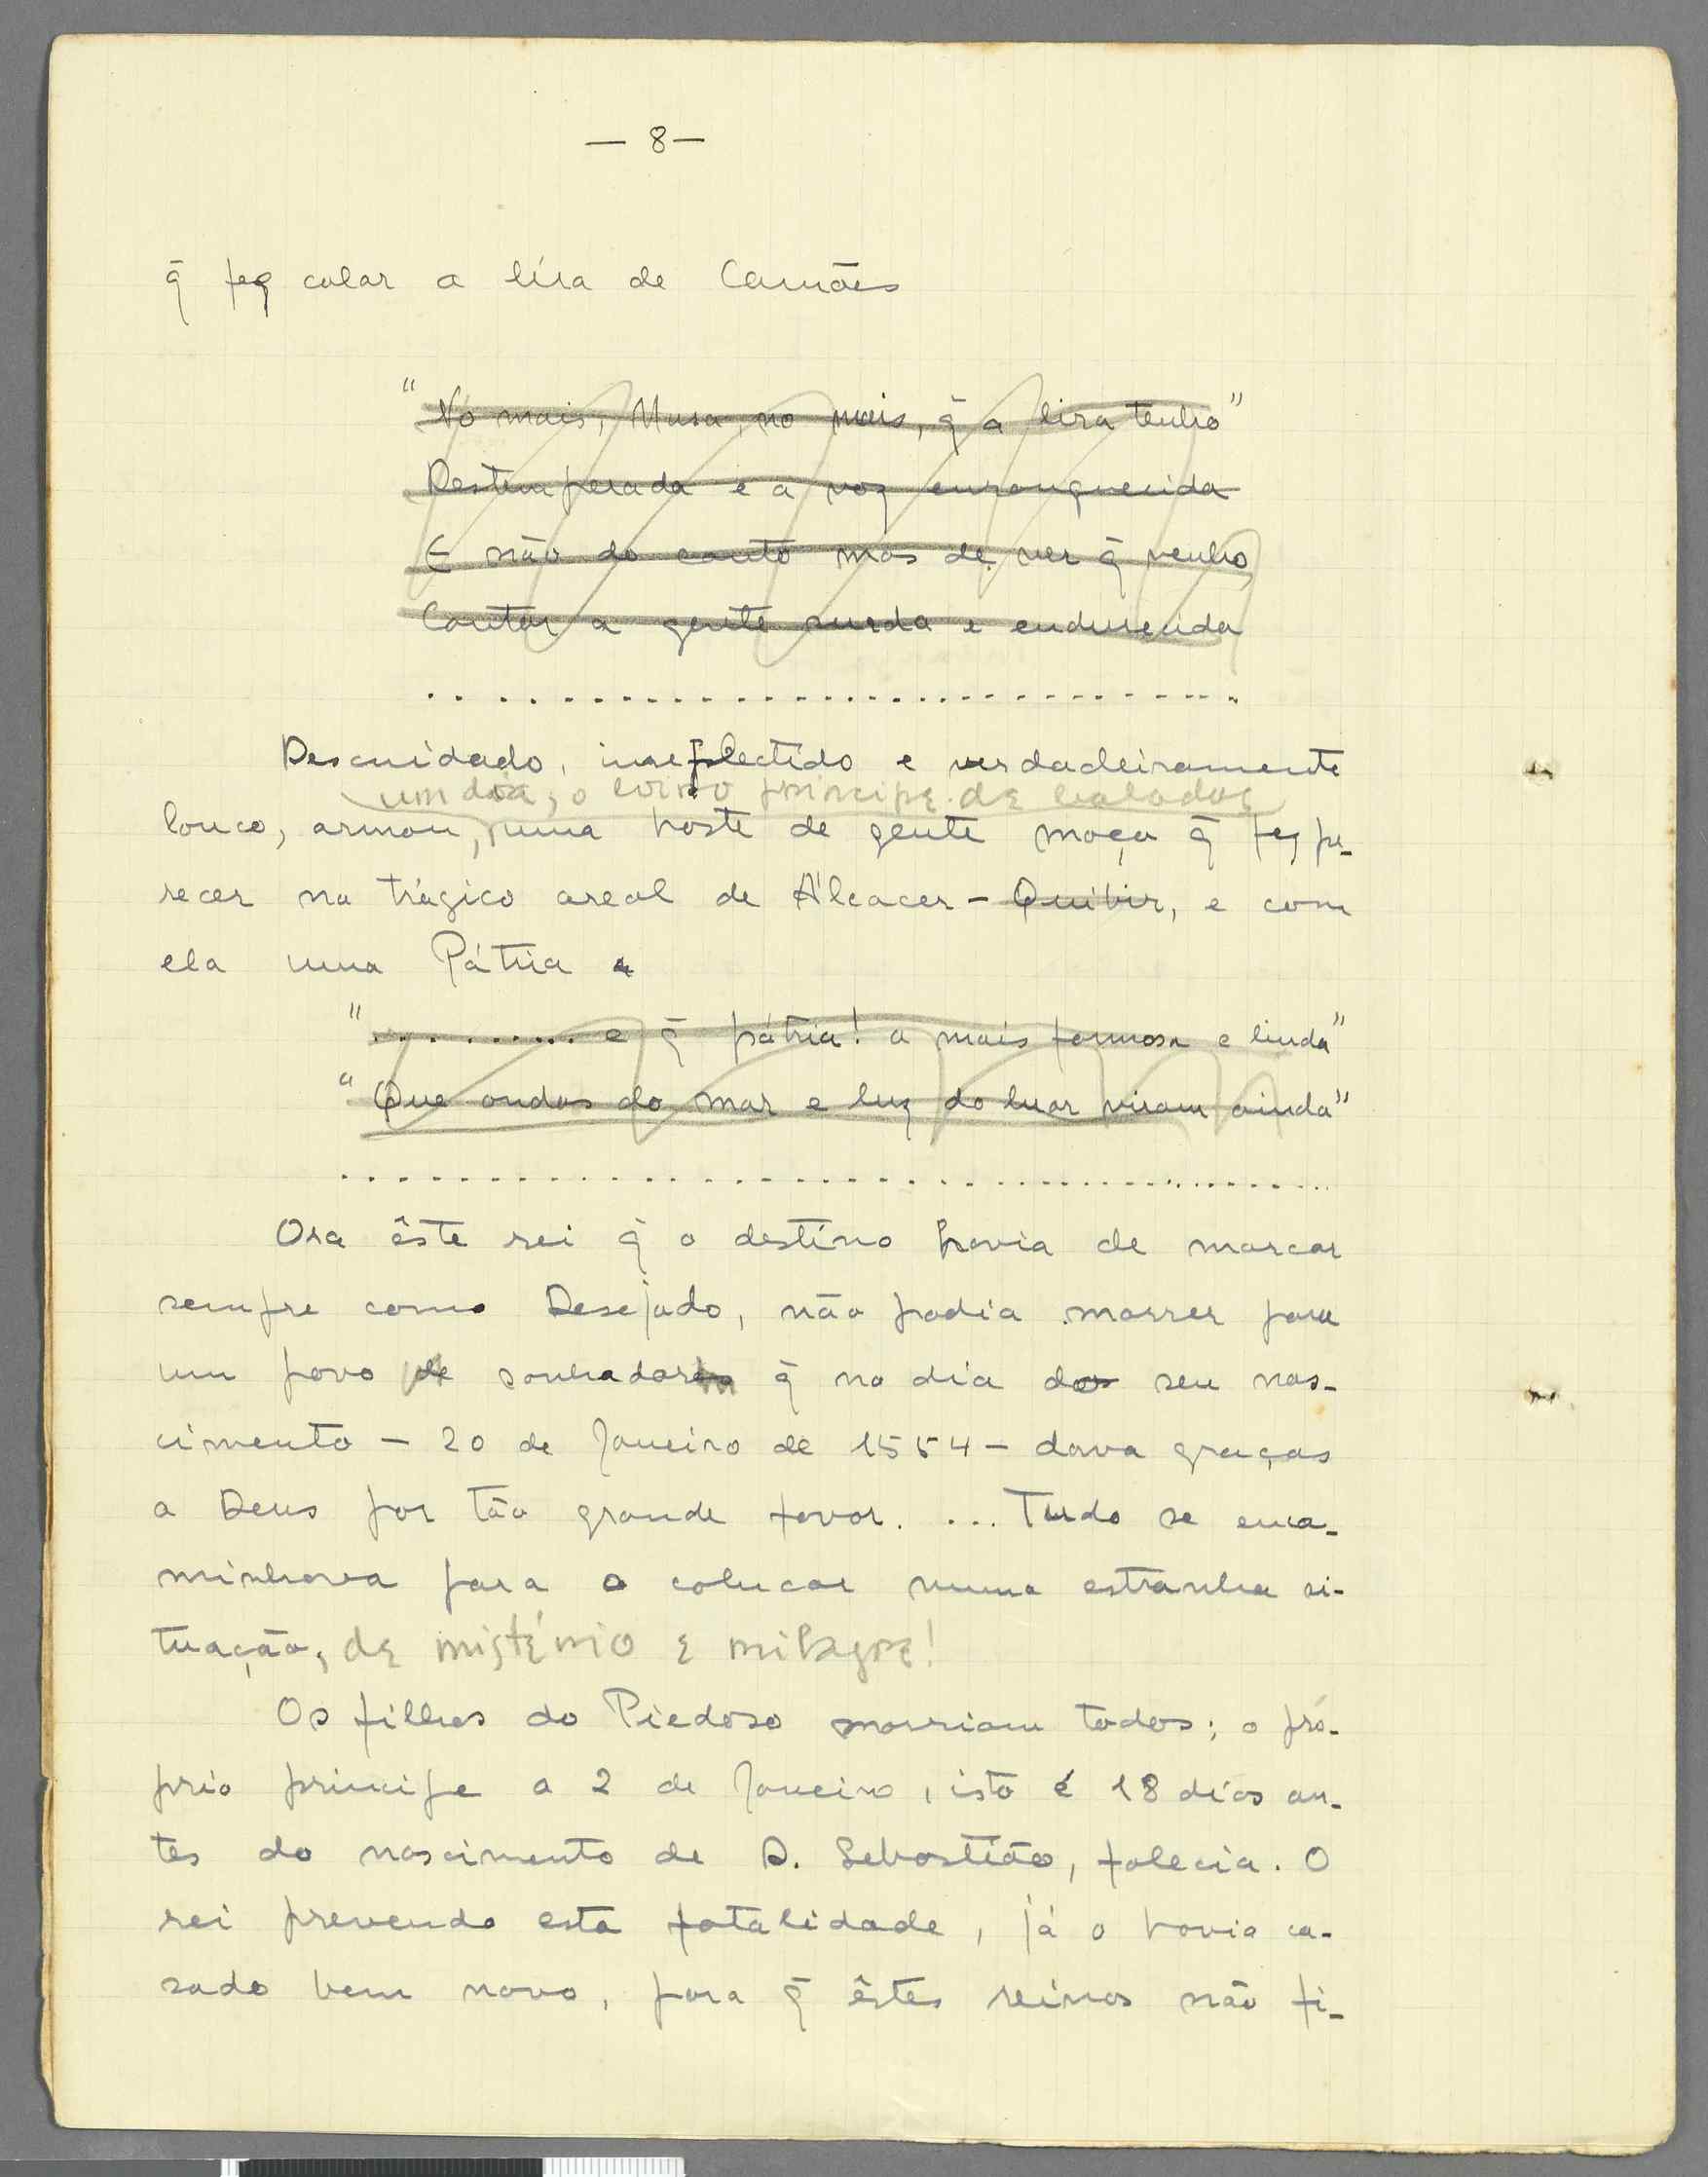 — 8 —
q̃ fez calar a líra de Camões
"Nó mais, Musa, no mais, q̃ a lira tenho"
Destemperada e a voz enrouquecida
E não do canto mas de ver q̃ venho
Cantar a gente surda e endurecida
......................................
Descuidado, irreflectido e verdadeiramente
um dia, o loiro principe de baladas
louco, armou, uma hoste de gente moça q̃ fez pe-
recer no trágico areal de Álcacer-Quíbir, e com
ela uma Pátria
"........... e q̃ pátria! a mais formosa e linda"
"Que ondas do mar e luz do luar viram ainda"
......................................
Ora êste rei q̃ o destíno havia de marcar
sempre como Desejado, não podia morrer para
um povo de sonhadores q̃ no dia do seu nas-
cimento — 20 de Janeiro de 1554 — dava graças
a Deus por tão grande favor. ... Tudo se enca-
minhava para o colucar numa estranha si-
tuação, de mistério e milagre!
Os filhos do Piedoso morriam todos; o pró-
prio principe a 2 de Janeiro, isto é 18 días an-
tes do nascimento de D. Sebastião, falecia. O
rei prevendo esta fatalidade, já o havia ca-
sado bem novo, para q̃ êstes reinos não fi-